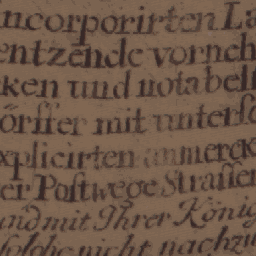 incorporirten La
entzende vorneh
ken und notabel
örffer mit untersc
xplicirten anmerck
er Postwege Straßen
und mit Ihrer König
solche nicht nachzu